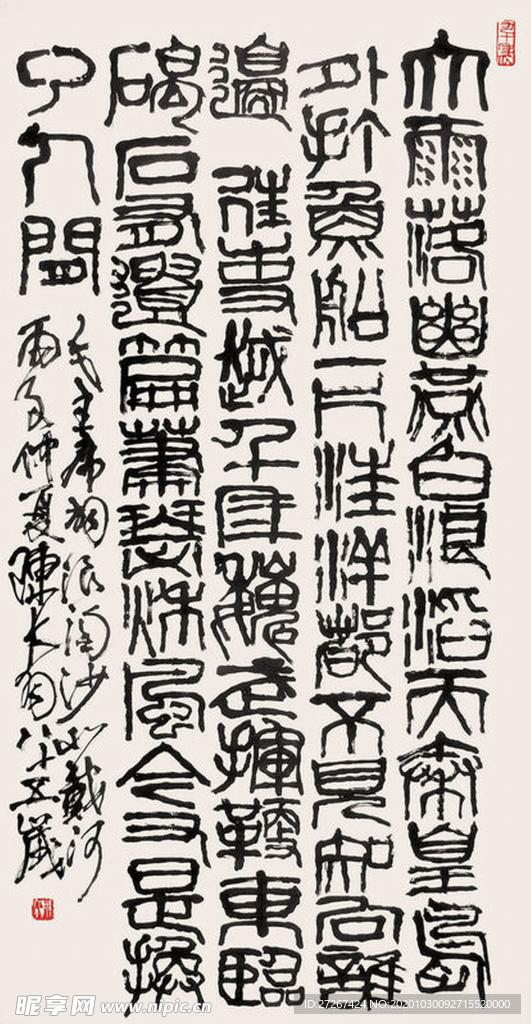 大雨落幽燕白浪滔天秦皇島
外打魚船一片汪洋都不見知向誰
邊往事越千年魏武揮鞭東臨
碣石有遺篇蕭瑟秋風今又是換
了人間
毛主席詞浪淘沙北戴河
丙子仲夏陳大羽八十五歲
昵享网 www.nipic.cn
ID:27267424 NO:20201030092715520000